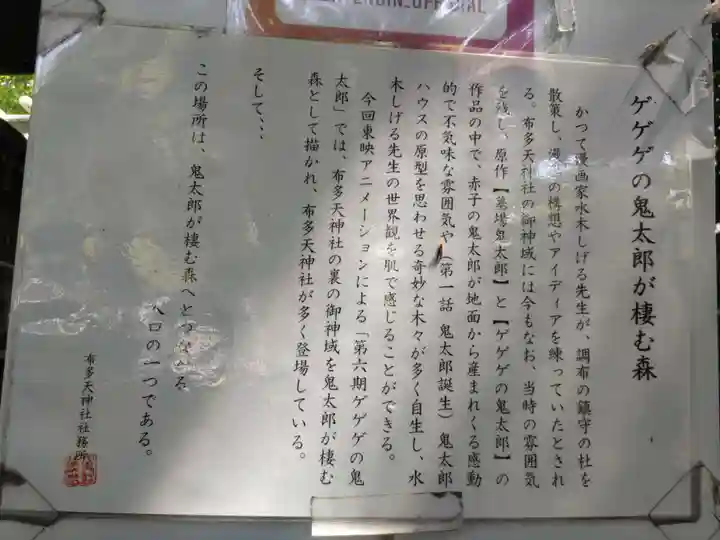 ゲゲゲの鬼太郎が棲む森
かつて漫画家水木しげる先生が、調布の鎮守の杜を
散策し、漫の構想やアイディアを練っていたとされ
る。布多天神社の御神域には今もなお、当時の雰囲気
を残し、原作【墓場鬼太郎】と【ゲゲゲの鬼太郎】の
作品の中で、赤子の鬼太郎が地面から産まれくる感動
的で不気味な雰囲気や（第一話 鬼太郎誕生）鬼太郎
ハウスの原型を思わせる奇妙な木々が多く自生し、水
木しげる先生の世界観を肌で感じることができる。
今回東映アニメーションによる「第六期ゲゲゲの鬼
太郎」では、布多天神社の裏の御神域を鬼太郎が棲む
森として描かれ、布多天神社が多く登場している。
そして、、、
この場所は、鬼太郎が棲む森へとつながる
入口の一つである。
布多天神社社務所